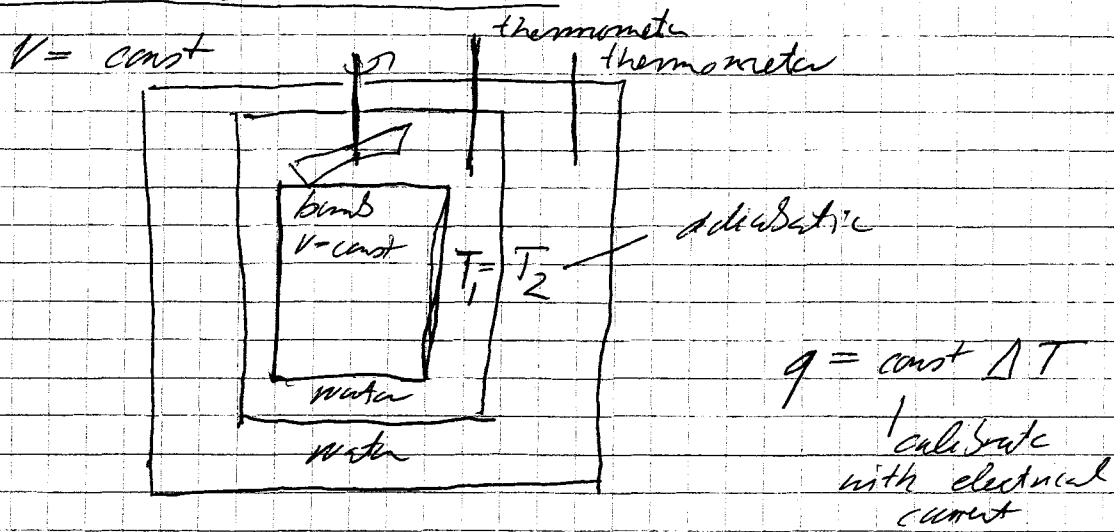 V = const
thermometer
thermometer
bomb
V-const
T₁ = T₂
adiabatic
water
water
q = const ΔT
calibrate
with electrical
current